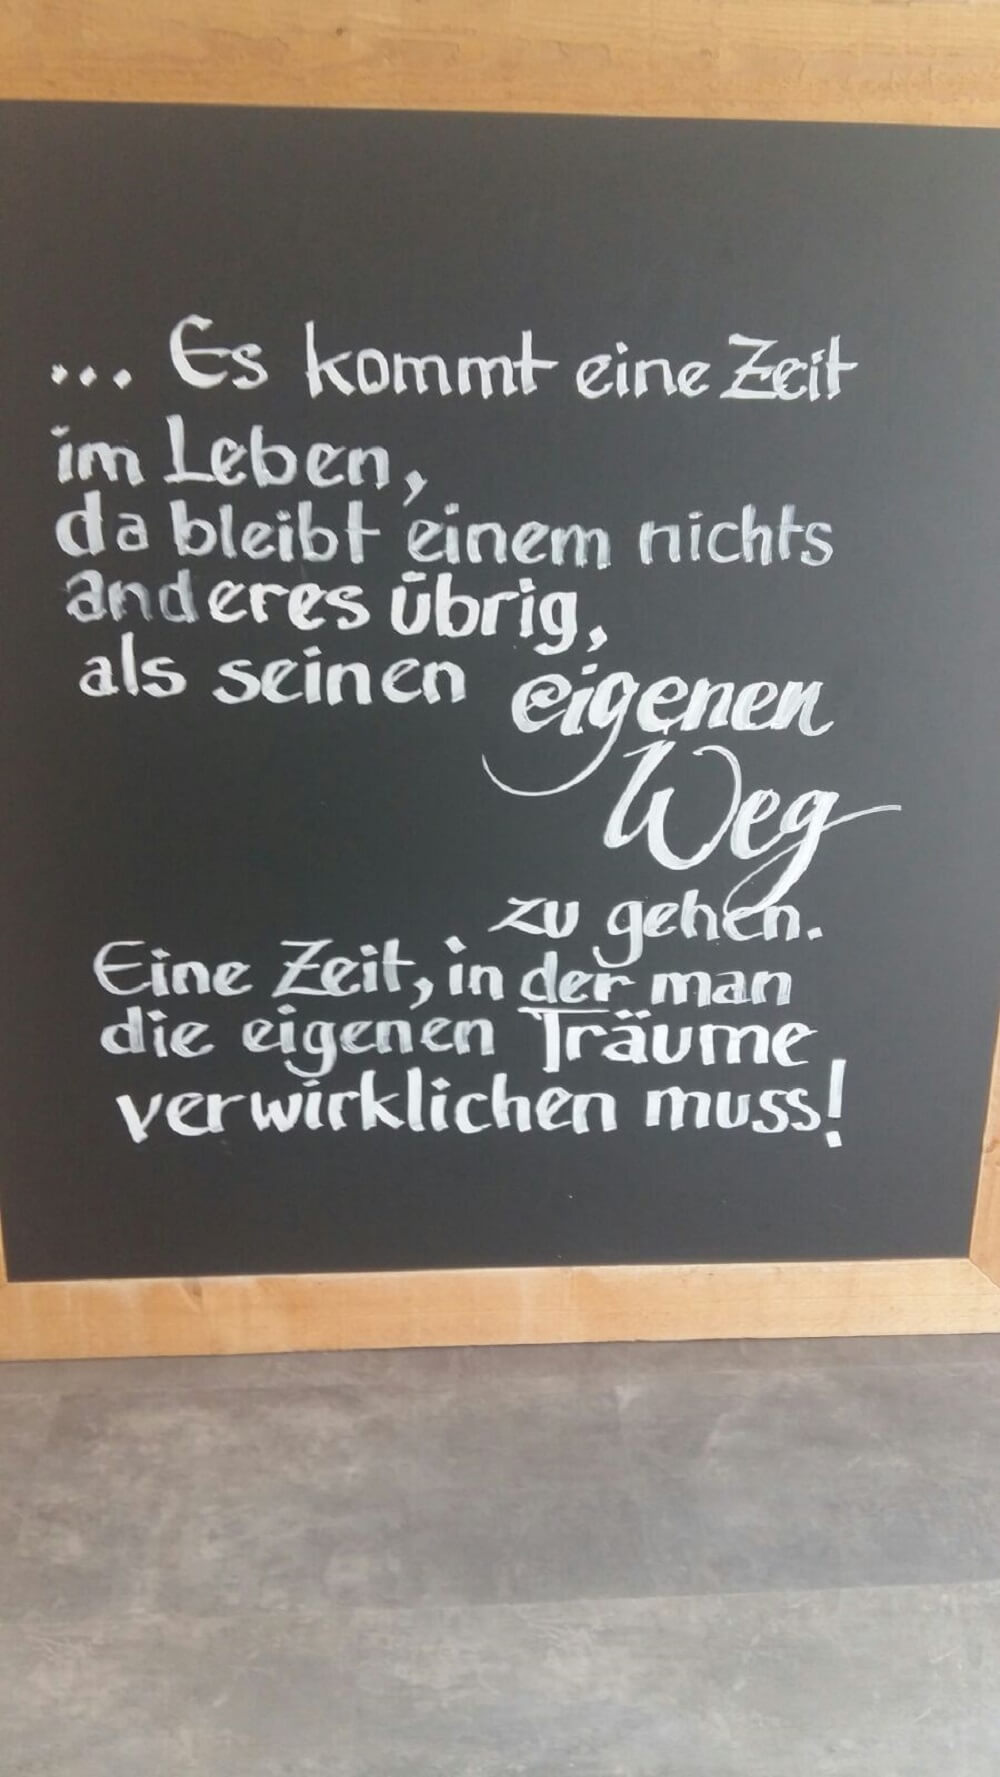 ... Es kommt eine Zeit
im Leben,
da bleibt einem nichts
anderes übrig,
als seinen eigenen
Weg
zu gehen.
Eine Zeit, in der man
die eigenen Träume
verwirklichen muss!